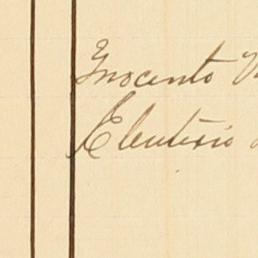 Inocento
Eleuterio